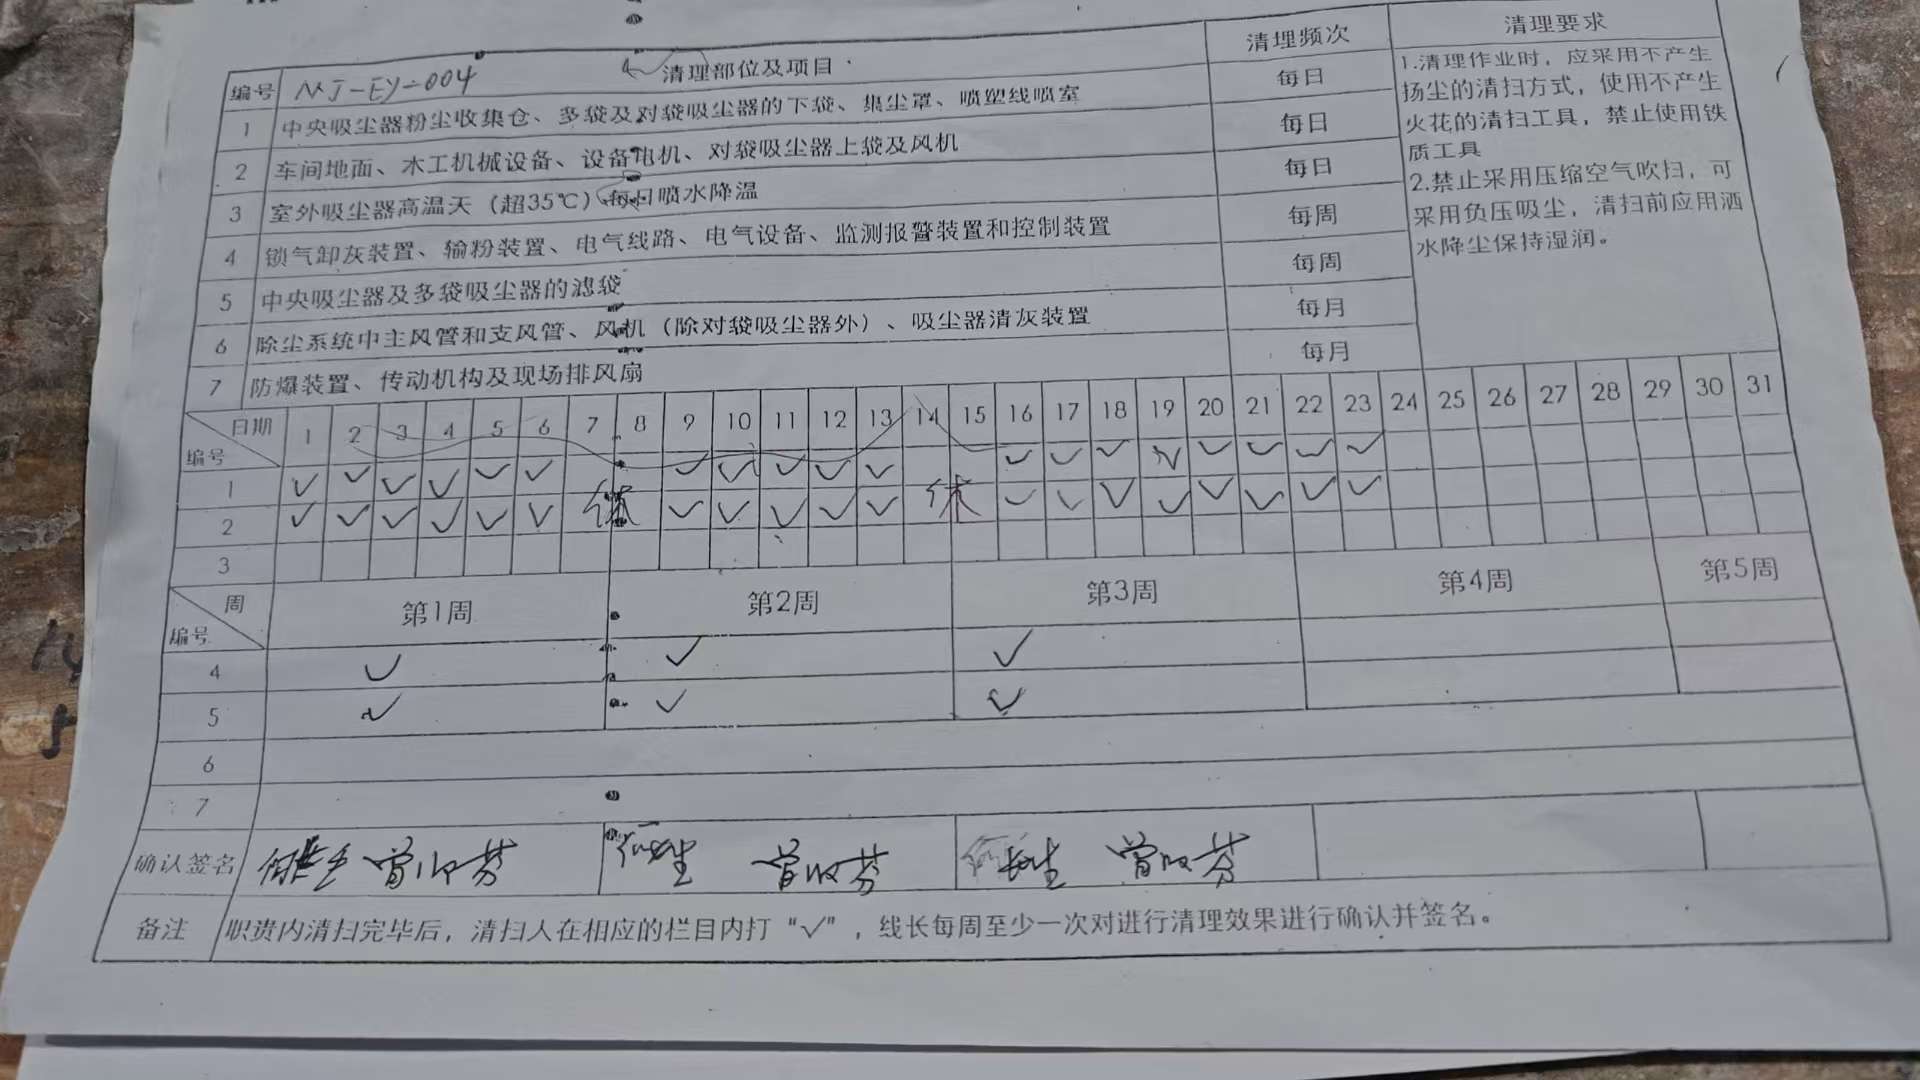 编号 MJ-EY-004 清理部位及项目 清理频次 清理要求
1 中央吸尘器粉尘收集仓、多袋及对袋吸尘器的下袋、集尘罩、喷塑线喷室 每日
2 车间地面、木工机械设备、设备电机、对袋吸尘器上袋及风机 每日
3 室外吸尘器高温天（超35℃）每日喷水降温 每日
4 锁气卸灰装置、输粉装置、电气线路、电气设备、监测报警装置和控制装置 每周
5 中央吸尘器及多袋吸尘器的滤袋 每周
6 除尘系统中主风管和支风管、风机（除对袋吸尘器外）、吸尘器清灰装置 每月
7 防爆装置、传动机构及现场排风扇 每月
1.清理作业时，应采用不产生
扬尘的清扫方式，使用不产生
火花的清扫工具，禁止使用铁
质工具
2.禁止采用压缩空气吹扫，可
采用负压吸尘，清扫前应用洒
水降尘保持湿润。
日期 编号 1 2 3 4 5 6 7 8 9 10 11 12 13 14 15 16 17 18 19 20 21 22 23 24 25 26 27 28 29 30 31
1 ✓ ✓ ✓ ✓ ✓ ✓ ✓ ✓ ✓ ✓ ✓ ✓ ✓ ✓ ✓ ✓ ✓ ✓ ✓
2 ✓ ✓ ✓ ✓ ✓ ✓ 休 ✓ ✓ ✓ ✓ ✓ 休 ✓ ✓ ✓ ✓ ✓ ✓ ✓ ✓
3
周 编号 第1周 第2周 第3周 第4周 第5周
4 ✓ ✓ ✓
5 ✓ ✓ ✓
6
7
确认签名
备注 职责内清扫完毕后，清扫人在相应的栏目内打“✓”，线长每周至少一次对进行清理效果进行确认并签名。